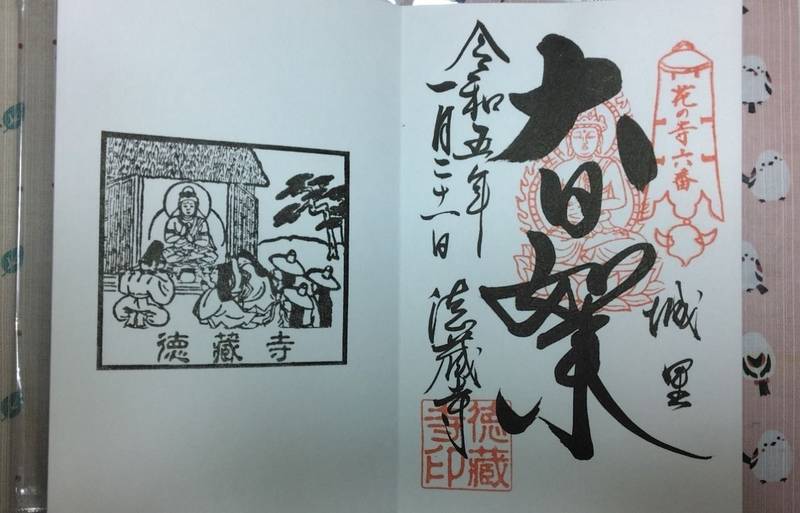 花の寺六番
城里
大日如来
令和五年
一月二十一日
徳蔵寺
徳藏
寺印
徳藏寺